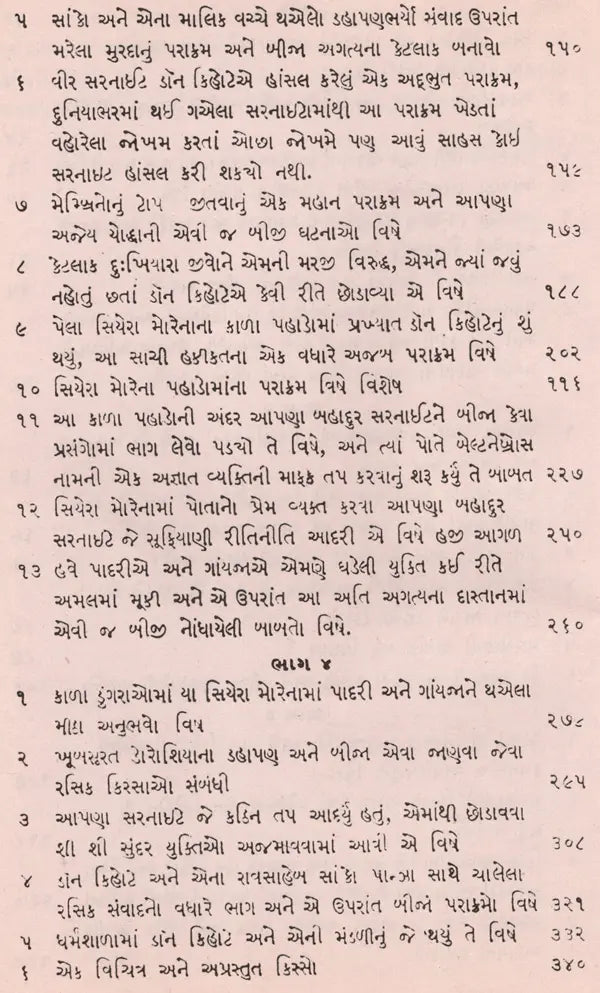 ૫ સાંકો અને એના માલિક વચ્ચે થએલો ડહાપણભર્યો સંવાદ ઉપરાંત
મરેલા મુરદાનું પરાક્રમ અને બીજા અગત્યના કેટલાક બનાવો ૧૫૦
૬ વીર સરનાઈટ ડૉન કિહોટેએ હાંસલ કરેલું એક અદ્ભુત પરાક્રમ,
દુનિયાભરમાં થઈ ગએલા સરનાઇટોમાંથી આ પરાક્રમ ખેડતાં
વહોરેલા જોખમ કરતાં ઓછા જોખમે પણ આવું સાહસ કોઇ
સરનાઇટ હાંસલ કરી શકયો નથી. ૧૫૯
૭ મેમ્બ્રિનોનું ટોપ જીતવાનું એક મહાન પરાક્રમ અને આપણા
અજેય યોદ્ધાની એવી જ બીજી ઘટનાઓ વિષે ૧૭૩
૮ કેટલાક દુઃખિયારા જીવોને એમની મરજી વિરુદ્ધ, એમને જ્યાં જવું
નહોતું છતાં ડૉન કિહોટેએ કેવી રીતે છોડાવ્યા એ વિષે ૧૮૮
૯ પેલા સિયેરા મોરેનાના કાળા પહાડોમાં પ્રખ્યાત ડૉન કિહોટેનું શું
થયું, આ સાચી હકીકતના એક વધારે અજબ પરાક્રમ વિષે ૨૦૨
૧૦ સિયેરા મોરેના પહાડોમાંના પરાક્રમ વિષે વિશેષ ૧૧૬
૧૧ આ કાળા પહાડોની અંદર આપણા બહાદુર સરનાઈટને બીજા કેવા
પ્રસંગોમાં ભાગ લેવો પડયો તે વિષે, અને ત્યાં પોતે બેલ્ટનેબ્રોસ
નામની એક અજ્ઞાત વ્યક્તિની માફક તપ કરવાનું શરૂ કર્યું તે બાબત ૨૨૭
૧૨ સિયેરા મોરેનામાં પોતાનો પ્રેમ વ્યક્ત કરવા આપણા બહાદુર
સરનાઇટે જે સૂફિયાણી રીતિનીતિ આદરી એ વિષે હજી આગળ ૨૫૦
૧૩ હવે પાદરીએ અને ગાંયજાએ એમણે ઘડેલી યુક્તિ કઈ રીતે
અમલમાં મૂકી અને એ ઉપરાંત આ અતિ અગત્યના દાસ્તાનમાં
એવી જ બીજી નોંધાયેલી બાબતો વિષે. ૨૬૦
ભાગ ૪
૧ કાળા ડુંગરાઓમાં યા સિયેરા મોરેનામાં પાદરી અને ગાંયજાને થએલા
મીઠા અનુભવો વિષ ૨૭૮
૨ ખૂબસૂરત ડોરોશિયાના ડહાપણ અને બીજા એવા જાણવા જેવા
રસિક કિસ્સાઓ સંબંધી ૨૯૫
૩ આપણા સરનાઇટે જે કઠિન તપ આદર્યું હતું, એમાંથી છોડાવવા
શી શી સુંદર યુક્તિઓ અજમાવવામાં આવી એ વિષે ૩૦૮
૪ ડૉન કિહોટે અને એના રાવસાહેબ સાંકો પાન્ઝા સાથે ચાલેલા
રસિક સંવાદનો વધારે ભાગ અને એ ઉપરાંત બીજાં પરાક્રમો વિષે ૩૨૧
૫ ધર્મશાળામાં ડૉન કિહોટે અને એની મંડળીનું જે થયું તે વિષે ૩૩૨
૬ એક વિચિત્ર અને અપ્રસ્તુત કિસ્સો ૩૪૦